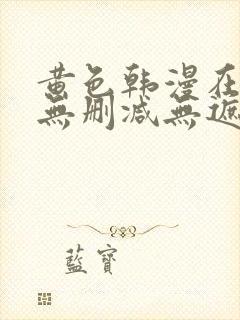 黄色韩漫在
無删减無遮
藍寶